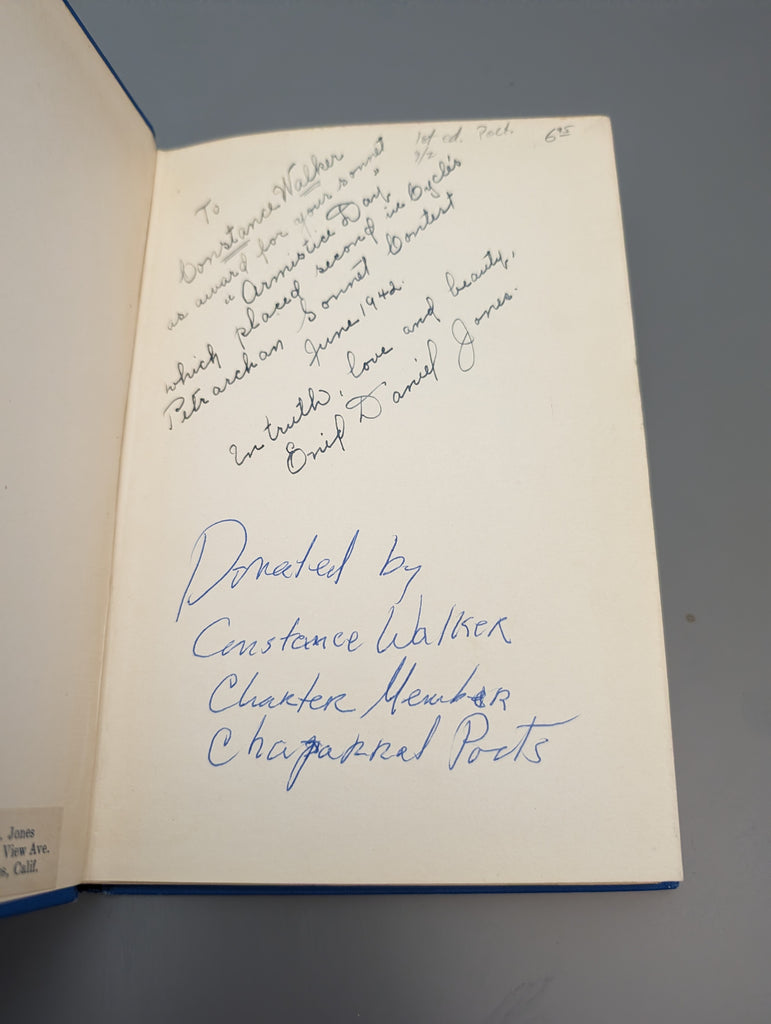 1st ed. Poet.
3/2
6⁹⁵
To
Constance Walker
as award for your sonnet
"Armistice Day"
which placed second in Cycle's
Petrarchan Sonnet Contest
June 1942.
In truth, love and beauty,
Enid Daniel Jones.
Donated by
Constance Walker
Charter Member
Chaparral Poets
. Jones
View Ave.
s, Calif.